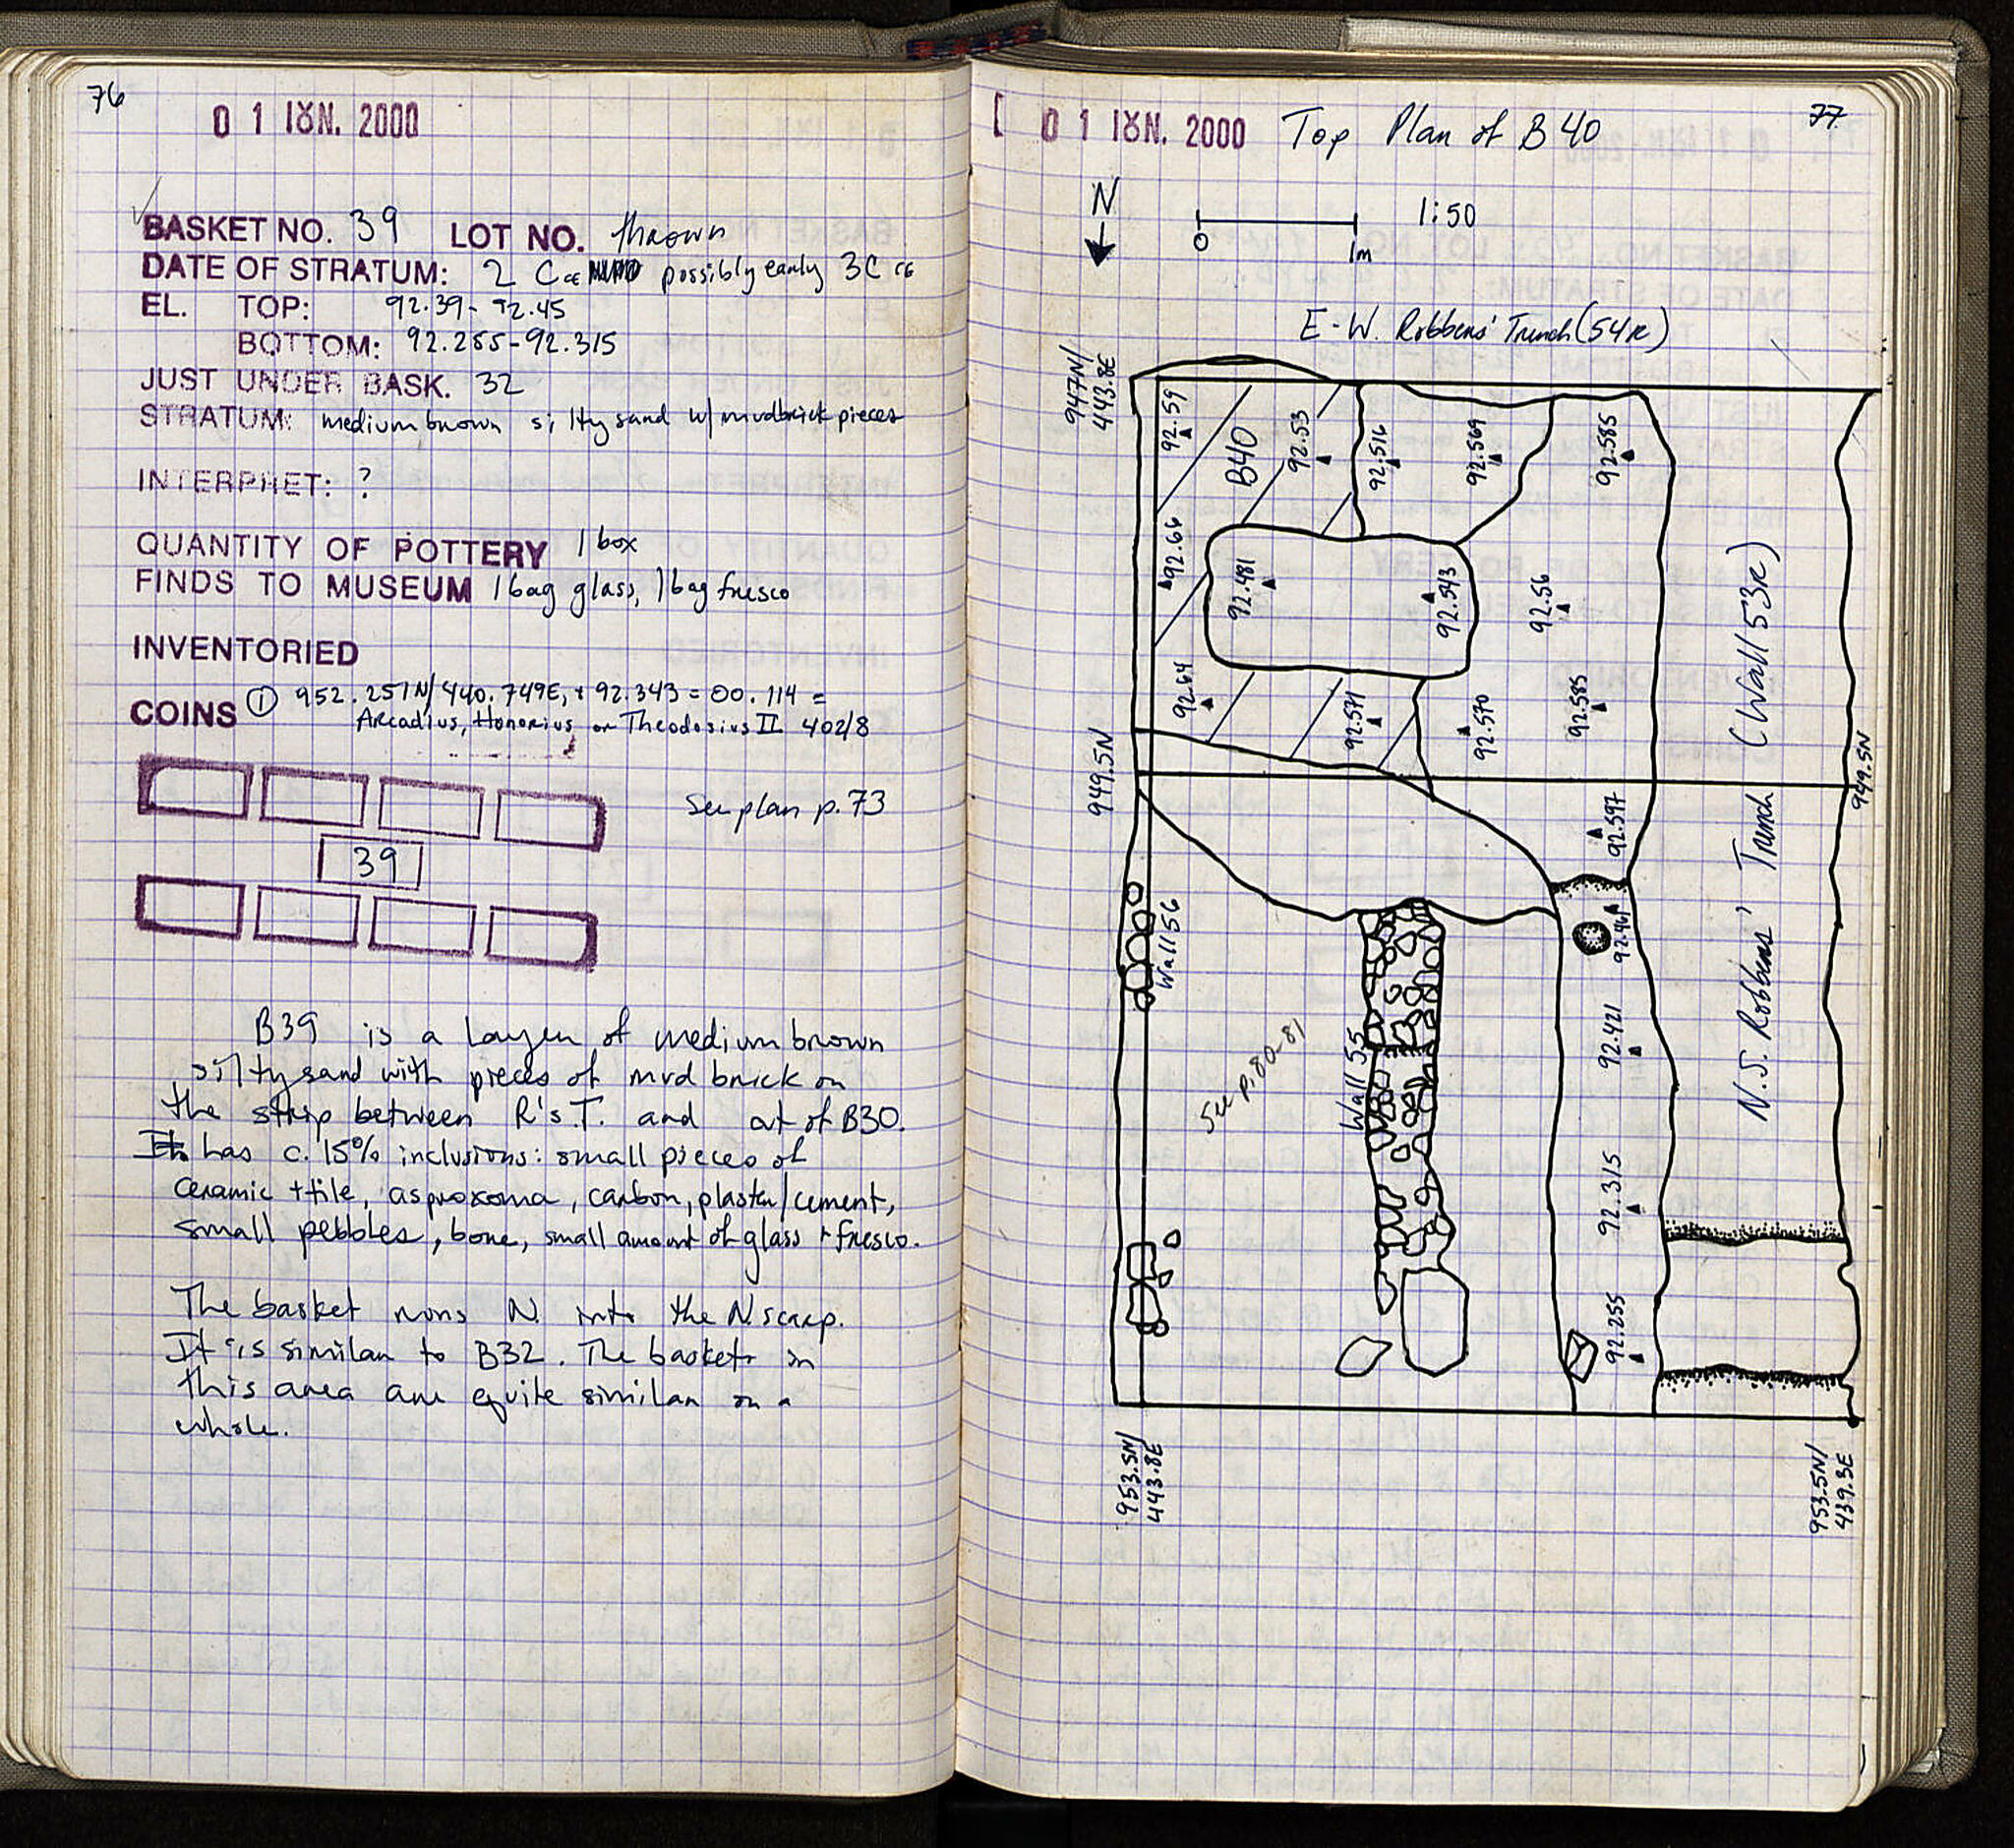 76
0 1 ΙȢΝ. 2000
BASKET NO. 39 LOT NO. thrown
DATE OF STRATUM: 2 C CE possibly early 3C CE
EL. TOP: 92.39 - 92.45
BOTTOM: 92.255-92.315
JUST UNDER BASK. 32
STRATUM: medium brown silty sand w/ mudbrick pieces
INTERPRET: ?
QUANTITY OF POTTERY 1 box
FINDS TO MUSEUM 1 bag glass, 1 bag fresco
INVENTORIED
COINS ① 952.251N/440.749E, + 92.343 = 00.114 =
Arcadius, Honorius, or Theodosius II 402/8
See plan p. 73
39
B39 is a layer of medium brown
silty sand with pieces of mud brick on
the strip between R's.T. and out of B30.
It has c. 15% inclusions: small pieces of
ceramic + tile, asproxoma, carbon, plaster/cement,
small pebbles, bone, small amount of glass + fresco.
The basket runs N. into the N scarp.
It is similar to B32. The baskets in
this area are quite similar on a
whole.
77
0 1 ΙȢΝ. 2000 Top Plan of B40
N
1:50
0 1m
E-W. Robbers' Trench (54R)
947N/
443.8E
92.59
B40
92.53
92.516
92.569
92.585
92.66
92.481
92.543
92.56
(Wall 53R)
92.64
92.571
92.570
92.585
949.5N
949.5N
92.597
N.S. Robbers' Trench
Wall 56
92.461
See p. 80-81
Wall 55
92.421
92.315
92.255
953.5N/
443.8E
953.5N/
439.3E